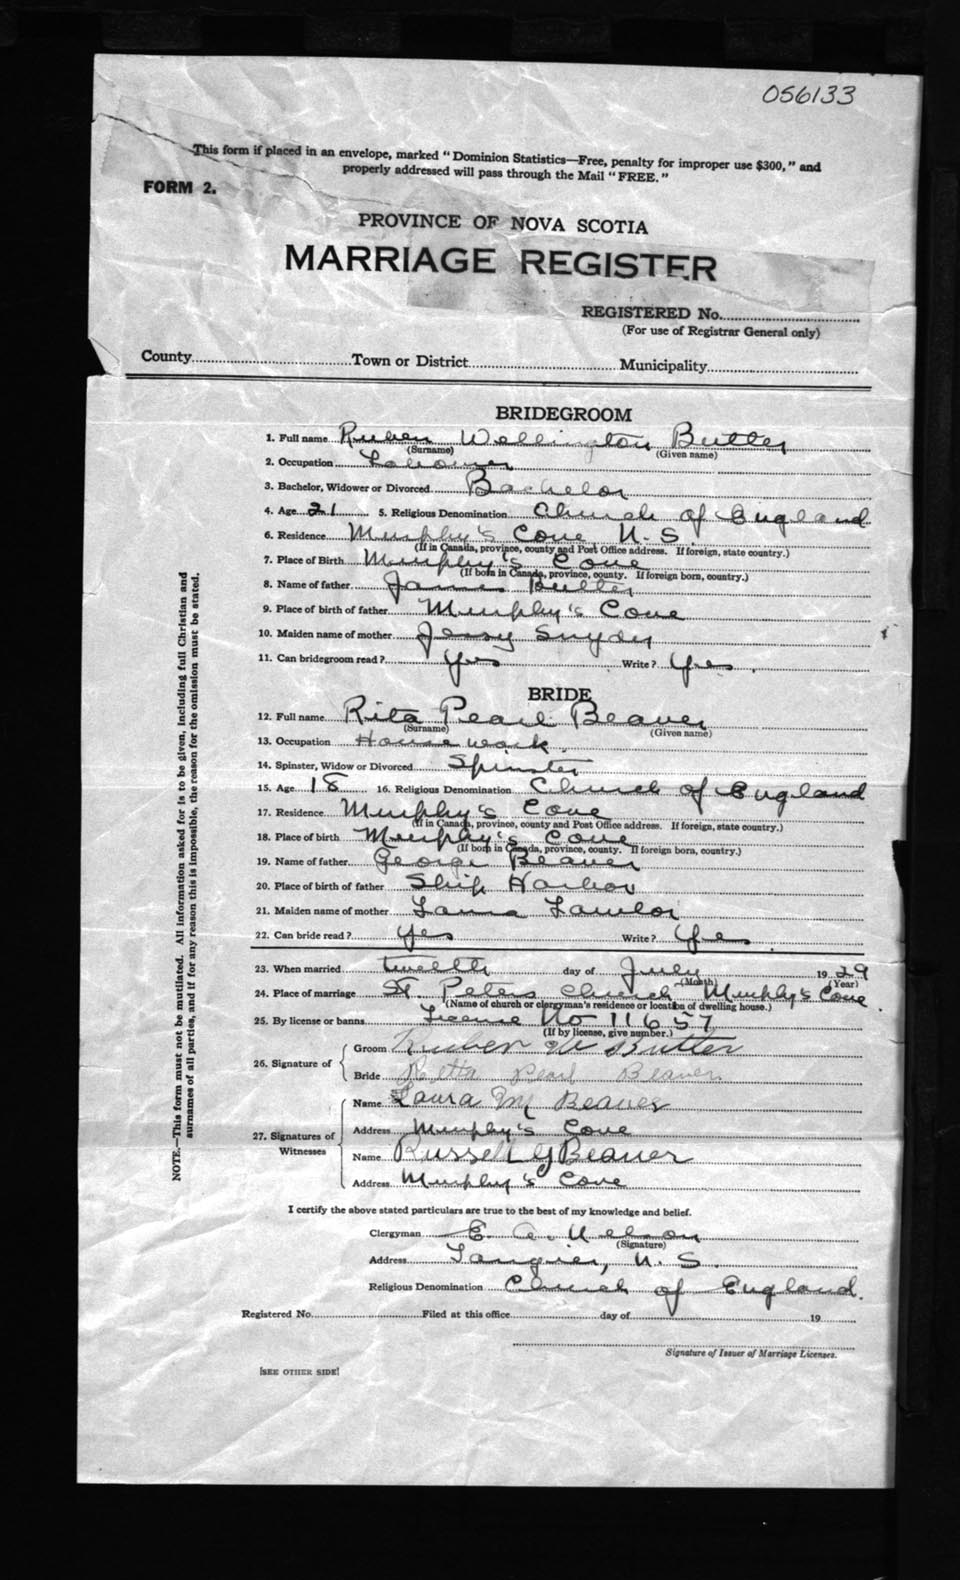 056133
This form if placed in an envelope, marked "Dominion Statistics—Free, penalty for improper use $300," and
properly addressed will pass through the Mail "FREE."
FORM 2.
PROVINCE OF NOVA SCOTIA
MARRIAGE REGISTER
REGISTERED No.
(For use of Registrar General only)
County Town or District Municipality
BRIDEGROOM
1. Full name Ruben Wellington Butler
(Surname) (Given name)
2. Occupation Labourer
3. Bachelor, Widower or Divorced Bachelor
4. Age 21 5. Religious Denomination Church of England
6. Residence Murphy's Cove N.S.
(If in Canada, province, county and Post Office address. If foreign, state country.)
7. Place of Birth Murphy's Cove
(If born in Canada, province, county. If foreign born, country.)
8. Name of father James Butler
9. Place of birth of father Murphy's Cove
10. Maiden name of mother Jessy Snyder
11. Can bridegroom read? Yes Write? Yes.
BRIDE
12. Full name Rita Pearl Beaver
(Surname) (Given name)
13. Occupation House work.
14. Spinster, Widow or Divorced Spinster
15. Age 18 16. Religious Denomination Church of England
17. Residence Murphy's Cove
(If in Canada, province, county and Post Office address. If foreign, state country.)
18. Place of birth Murphy's Cove
(If born in Canada, province, county. If foreign born, country.)
19. Name of father George Beaver
20. Place of birth of father Ship Harbor
21. Maiden name of mother Lawlor
22. Can bride read? Yes Write? Yes.
23. When married twelth day of July 1929
(Month) (Year)
24. Place of marriage St. Peters Church Murphy's Cove
(Name of church or clergyman's residence or location of dwelling house.)
25. By license or banns License No 11657
(If by license, give number.)
26. Signature of
Groom Ruben W Butler
Bride Retta Pearl Beaver
27. Signatures of Witnesses
Name Laura M Beaver
Address Murphy's Cove
Name Russell G Beaver
Address Murphy's Cove
I certify the above stated particulars are true to the best of my knowledge and belief.
Clergyman E. A. Nelson
(Signature)
Address Tangier, N.S.
Religious Denomination Church of England.
Registered No. Filed at this office day of 19
Signature of Issuer of Marriage Licenses.
[SEE OTHER SIDE]
NOTE.—This form must not be mutilated. All information asked for is to be given, including full Christian and
surnames of all parties, and if for any reason this is impossible, the reason for the omission must be stated.